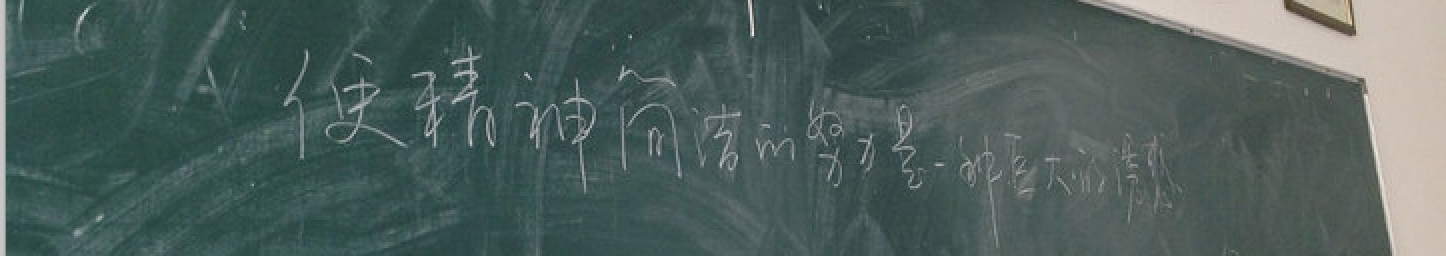 使精神简洁的努力是一种巨大的